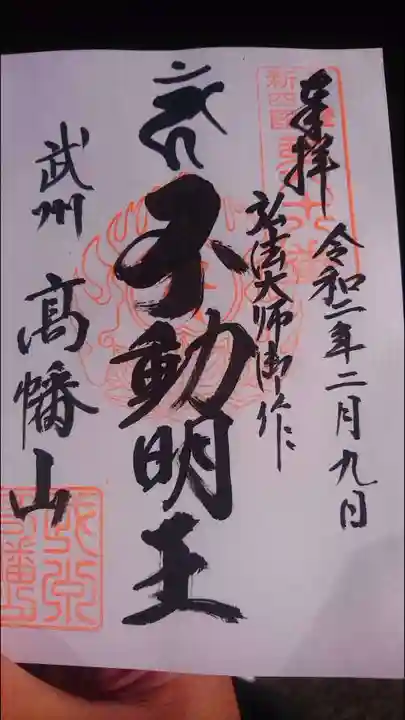 奉拝
令和二年二月九日
弘法大師御作
不動明王
武州
高幡山